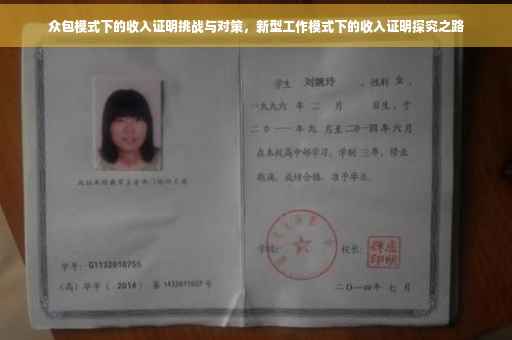 众包模式下的收入证明挑战与对策，新型工作模式下的收入证明探究之路
学生 刘婉玲 ，性别 女 ，
一九九六 年 二 月 日生，于
二〇一一年九 月至二〇一四年六月
在本校高中部学习，学制 三年，修业
期满，成绩合格，准予毕业。
学号：G1132010755
(高) 毕字 ( 2014 ) 第 1432011027 号
校长：
二〇一四年 七 月